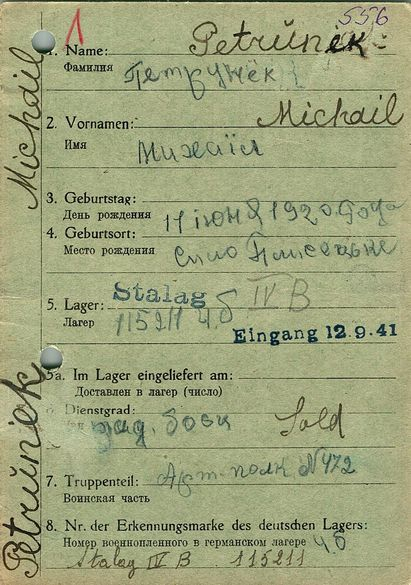 5556
1
1. Name: Petrŭnék:
Фамилия Петрунёк
2. Vornamen: Michail
Имя Михаіл
3. Geburtstag:
День рождения 11 июня 1920. Года
4. Geburtsort:
Место рождения село Плисецьке
5. Lager: Stalag IV B
Лагер 115211 4.б
Eingang 12.9.41
5a. Im Lager eingeliefert am:
Доставлен в лагер (число)
Dienstgrad: Sold
ряд. боец
7. Truppenteil: Арт-полк N472
Воинская часть
8. Nr. der Erkennungsmarke des deutschen Lagers:
Номер военнопленного в германском лагере 4б
Stalag IV B 115211
Michail
Petrŭnék